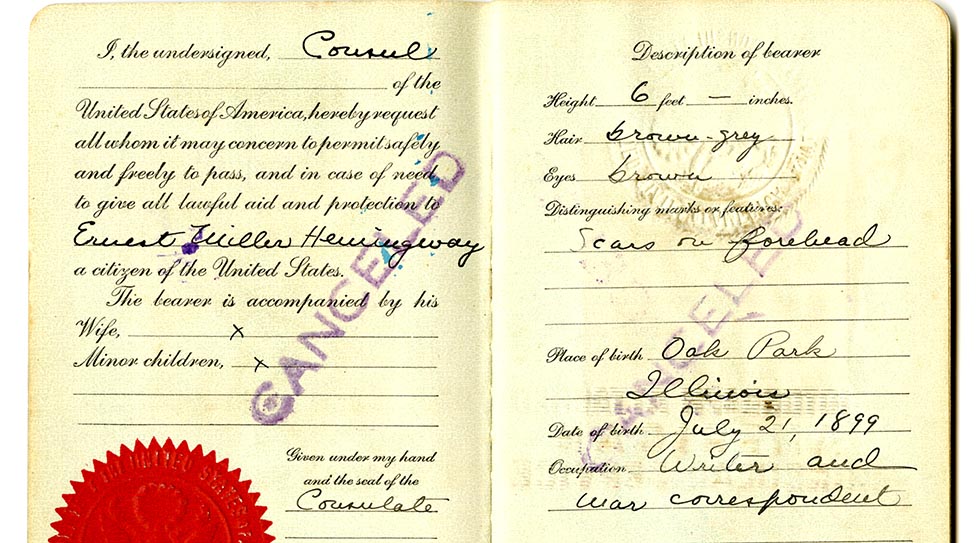 I, the undersigned, Consul
of the
United States of America, hereby request
all whom it may concern to permit safely
and freely to pass, and in case of need
to give all lawful aid and protection to
Ernest Miller Hemingway
a citizen of the United States.
The bearer is accompanied by his
Wife, x
Minor children, x
Given under my hand
and the seal of the
Consulate
CANCELED
Description of bearer
Height 6 feet — inches.
Hair brown-grey
Eyes brown
Distinguishing marks or features:
Scars on forehead
Place of birth Oak Park
Illinois
Date of birth July 21, 1899
Occupation Writer and
war correspondent
CANCELED